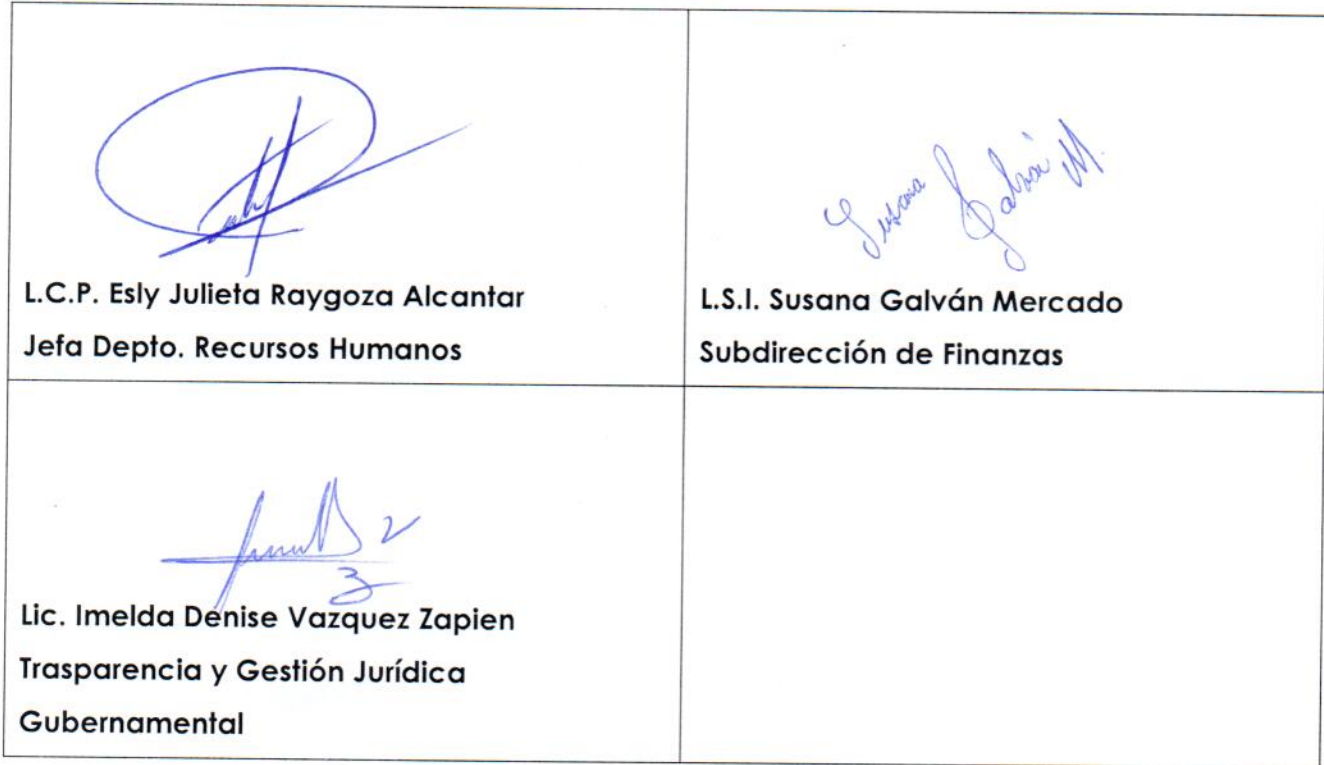 Susana Galván M.
L.C.P. Esly Julieta Raygoza Alcantar
Jefa Depto. Recursos Humanos
L.S.I. Susana Galván Mercado
Subdirección de Finanzas
Lic. Imelda Denise Vazquez Zapien
Trasparencia y Gestión Jurídica
Gubernamental